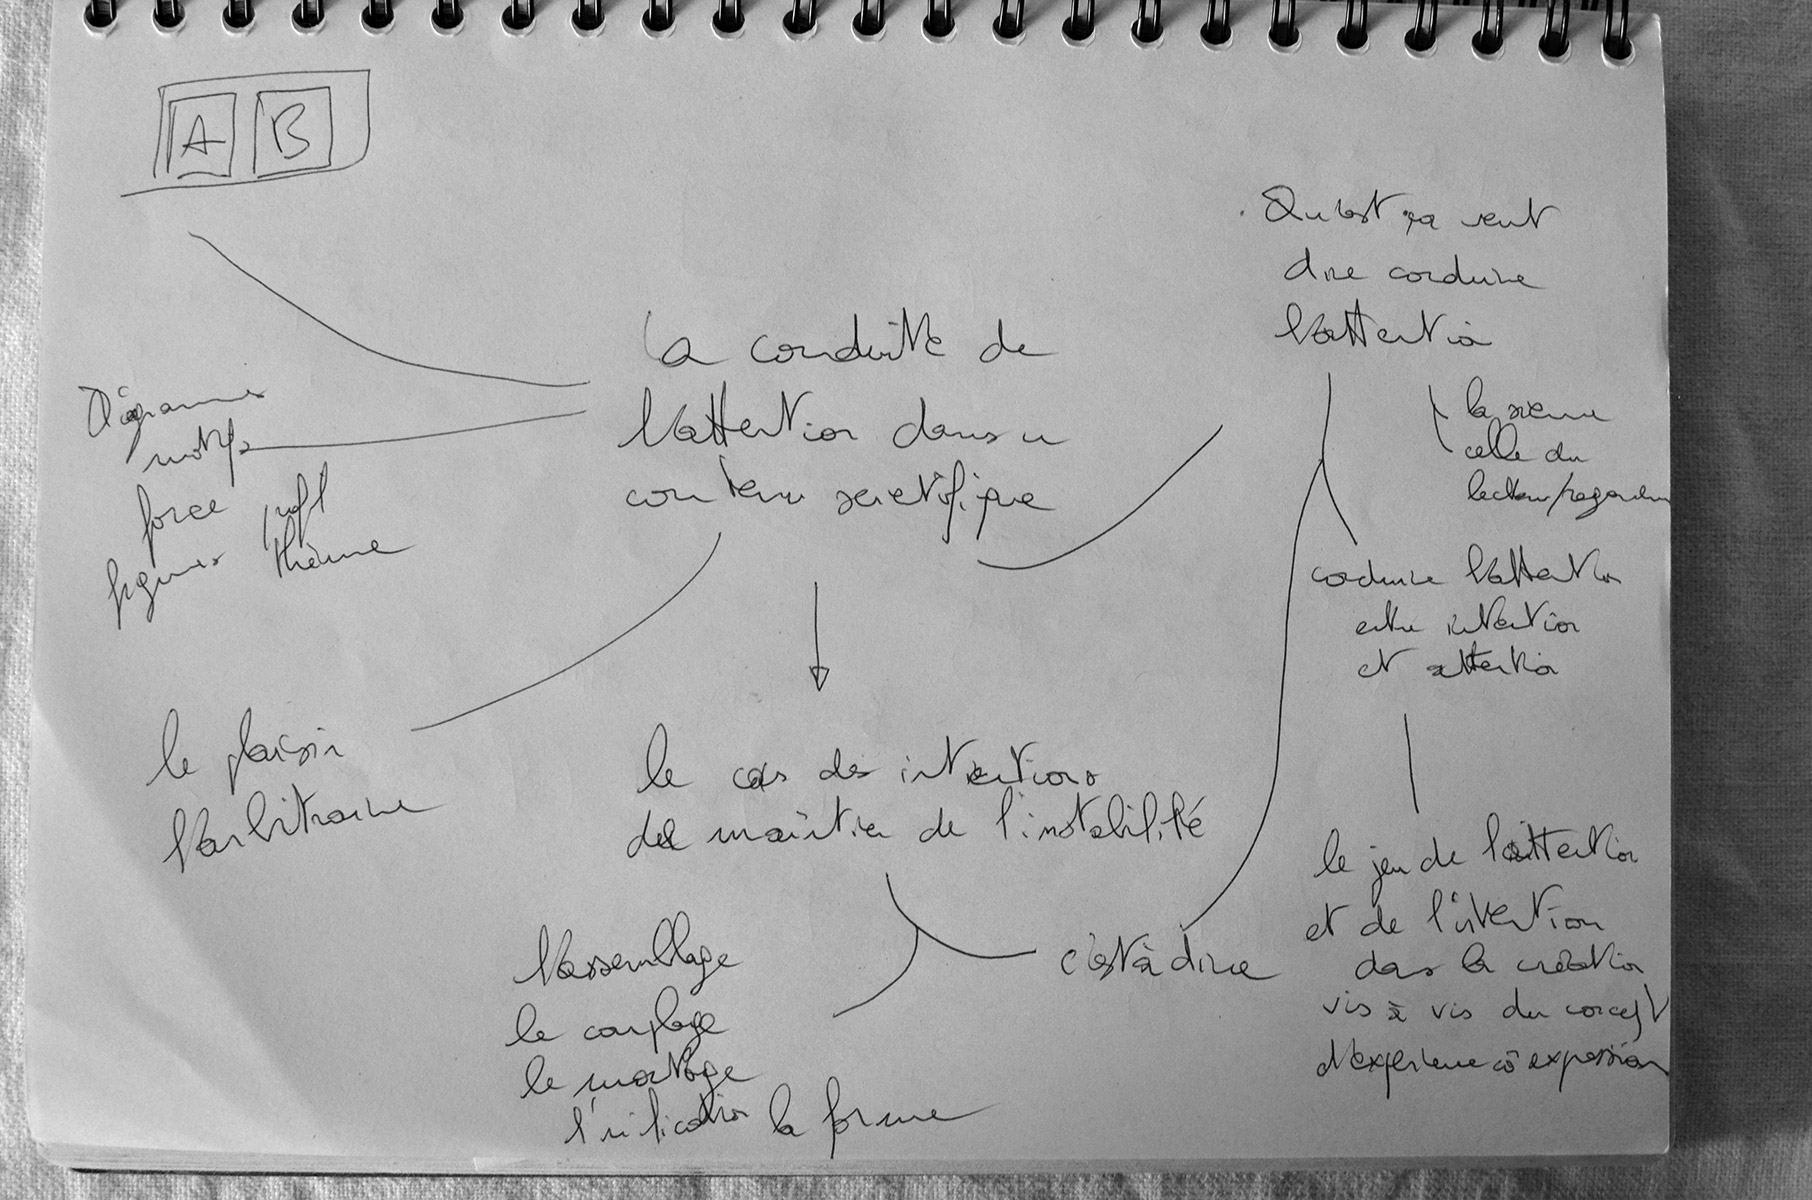 A B
Qu'est ça veut
dire conduire
l'attention
la sienne
celle du
lecteur/regardeur
conduire l'attention
entre intention
et attention
le jeu de l'attention
et de l'intention
dans la création
vis à vis du concept
d'expérience co expression
la conduite de
l'attention dans un
contenu scientifique
Diagrammes
motifs
force
figures thème
le plaisir
l'arbitraire
le cas des intentions
de maintien de l'instabilité
c'est à dire
l'assemblage
le couplage
le montage
la forme